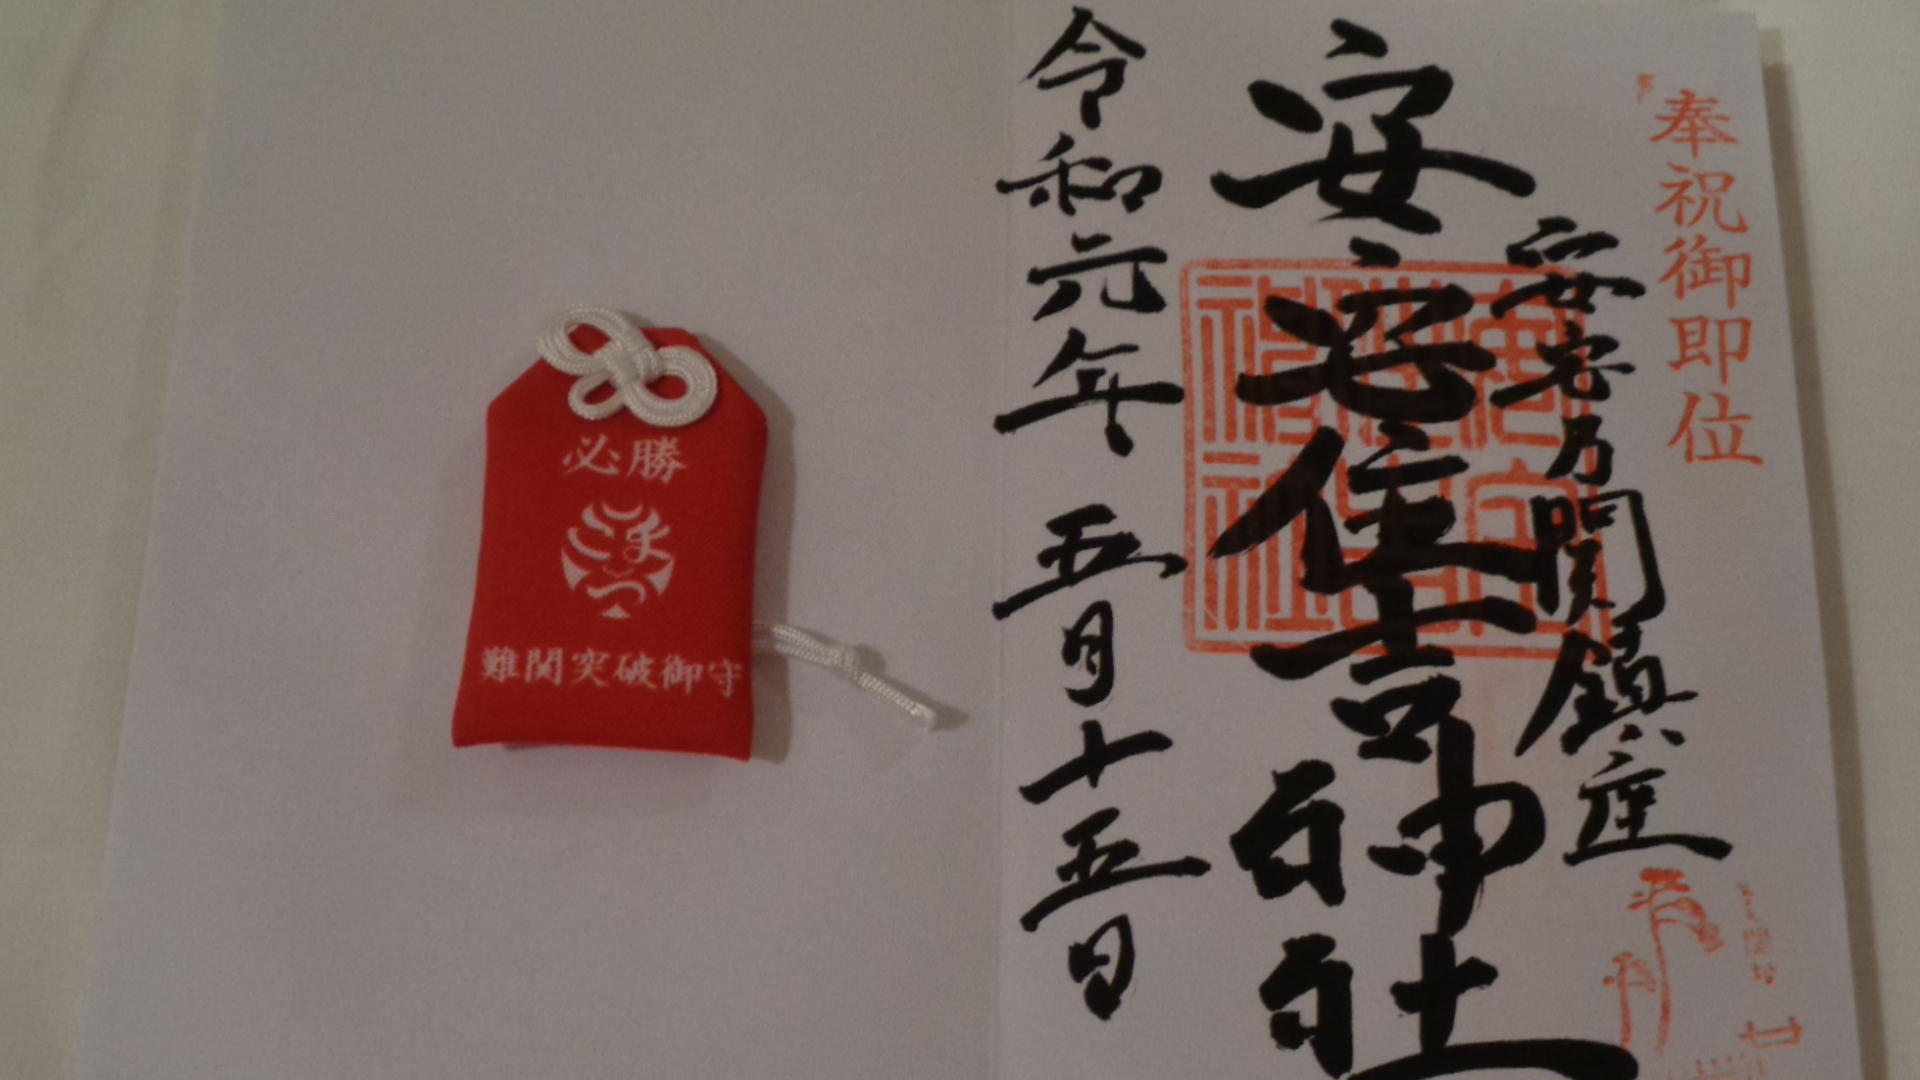 必勝
こまつ
難関突破御守
奉祝御即位
安宅乃関鎮座
安宅住吉神社
令和元年 五月十五日